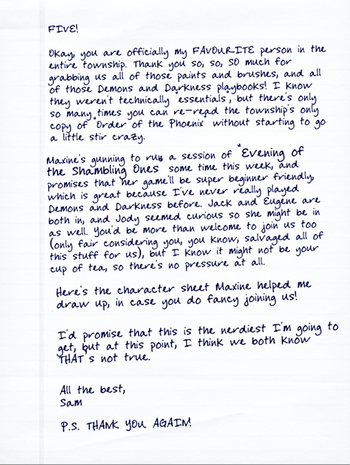 FIVE!
Okay, you are officially my FAVOURITE person in the
entire township. Thank you so, so, SO much for
grabbing us all of those paints and brushes, and all
of those Demons and Darkness playbooks! I know
they weren't technically essentials, but there's only
so many times you can re-read the township's only
copy of 'Order of the Phoenix' without starting to go
a little stir crazy.
Maxine's gunning to run a session of "Evening of
the Shambling Ones" some time this week, and
promises that her game'll be super beginner friendly,
which is great because I've never really played
Demons and Darkness before. Jack and Eugene are
both in, and Jody seemed curious so she might be in
as well. You'd be more than welcome to join us too
(only fair considering you, you know, salvaged all of
this stuff for us), but I know it might not be your
cup of tea, so there's no pressure at all.
Here's the character sheet Maxine helped me
draw up, in case you do fancy joining us!
I'd promise that this is the nerdiest I'm going to
get, but at this point, I think we both know
THAT's not true.
All the best,
Sam
P.S. THANK YOU AGAIN!